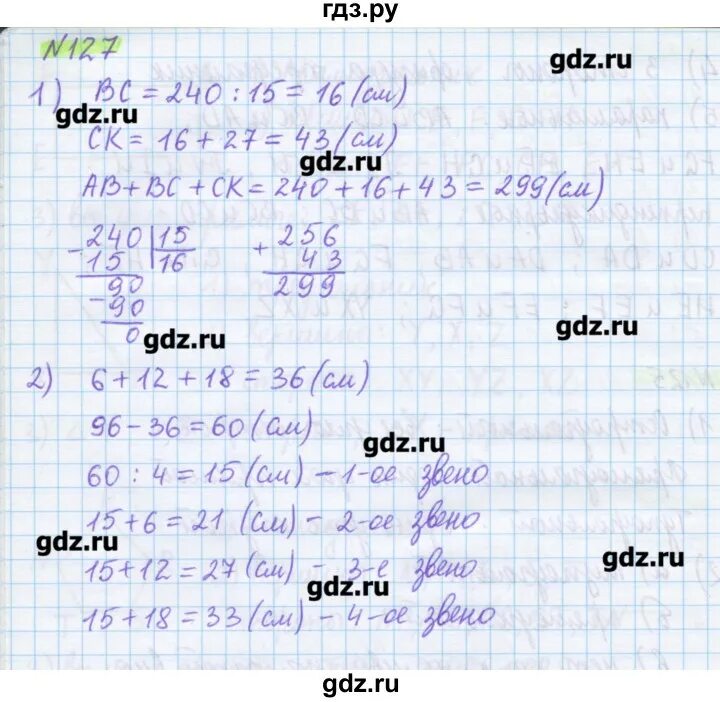 гдз.ру
№127
gdz.ru
1) BC = 240 : 15 = 16 (см)
gdz.ru
CK = 16 + 27 = 43 (см)
gdz.ru
AB + BC + CK = 240 + 16 + 43 = 299 (см)
- 240 | 15
15 | 16
- 90
90
0
+ 256
43
299
gdz.ru
gdz.ru
2) 6 + 12 + 18 = 36 (см)
96 - 36 = 60 (см)
gdz.ru
60 : 4 = 15 (см) - 1-ое звено
15 + 6 = 21 (см) - 2-ое звено
gdz.ru
15 + 12 = 27 (см) - 3-е звено
gdz.ru
gdz.ru
15 + 18 = 33 (см) - 4-ое звено
gdz.ru